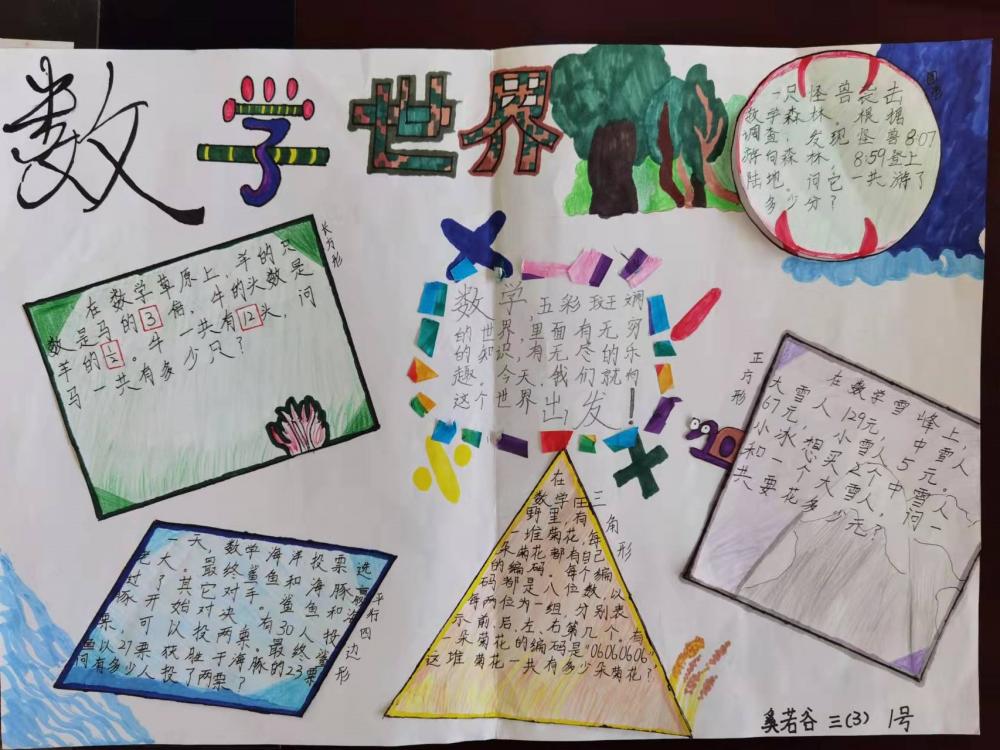 数学世界
圆形
一只怪兽袭击
数学森林。根据
调查，发现怪兽8:07
游向森林，8:59登上
陆地。问它一共游了
多少分？
长方形
在数学草原上，羊的只
数是马的3倍，牛的头数是
羊的½。牛一共有12头，问
马一共有多少只？
数学,五彩斑斓
的世界,里面有无穷
的知识,有无尽的乐
趣。今天,我们就向
这个世界出发！
正方形
在数学雪峰上，
大雪人129元，中雪人
67元，小雪人5元。
小冰想买2个中雪人
和一个大雪人，问一
共要花多少元？
一天，数学海洋投票选
老大。最终鲨鱼和海豚
过了其它对手。鲨鱼和海
豚开始对决。有30人投
票，可以投两票。最终鲨
鱼以27票获胜于海豚的23票
问有多少人投了两票？
平行四边形
三角形
在
数学田
野里，有
一堆菊花，每
朵菊花都有自己
的编码。每个编
码都是八位数，以
每两位为一组，分别表
示前、后、左、右第几个，有
一朵菊花的编码是"06060606"
这堆菊花一共有多少朵菊花？
奚若谷 三(3) 1号